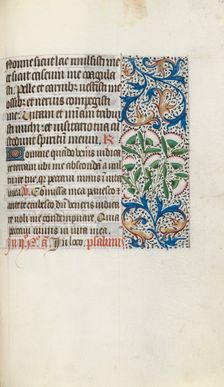 Nonne sicut lac mulsisti me
et sicut caseum me coagula
sti. Pelle et carnib; vestisti me
ossib; et nervis compegisti
me. Vitam et miam tribu
isti michi: et visitatio tua cu
stodivit spiritum meum. R
Domine quando veneris iudica
re terram ubi me abscondam a
ire tue, quia peccavi nimis in vita
mea. Comissa mea pavesco et
ante te erubesco dum veneris iudica
re noli me condempnare. Quia
peccavi nimis in vita mea.
In loco psalmus